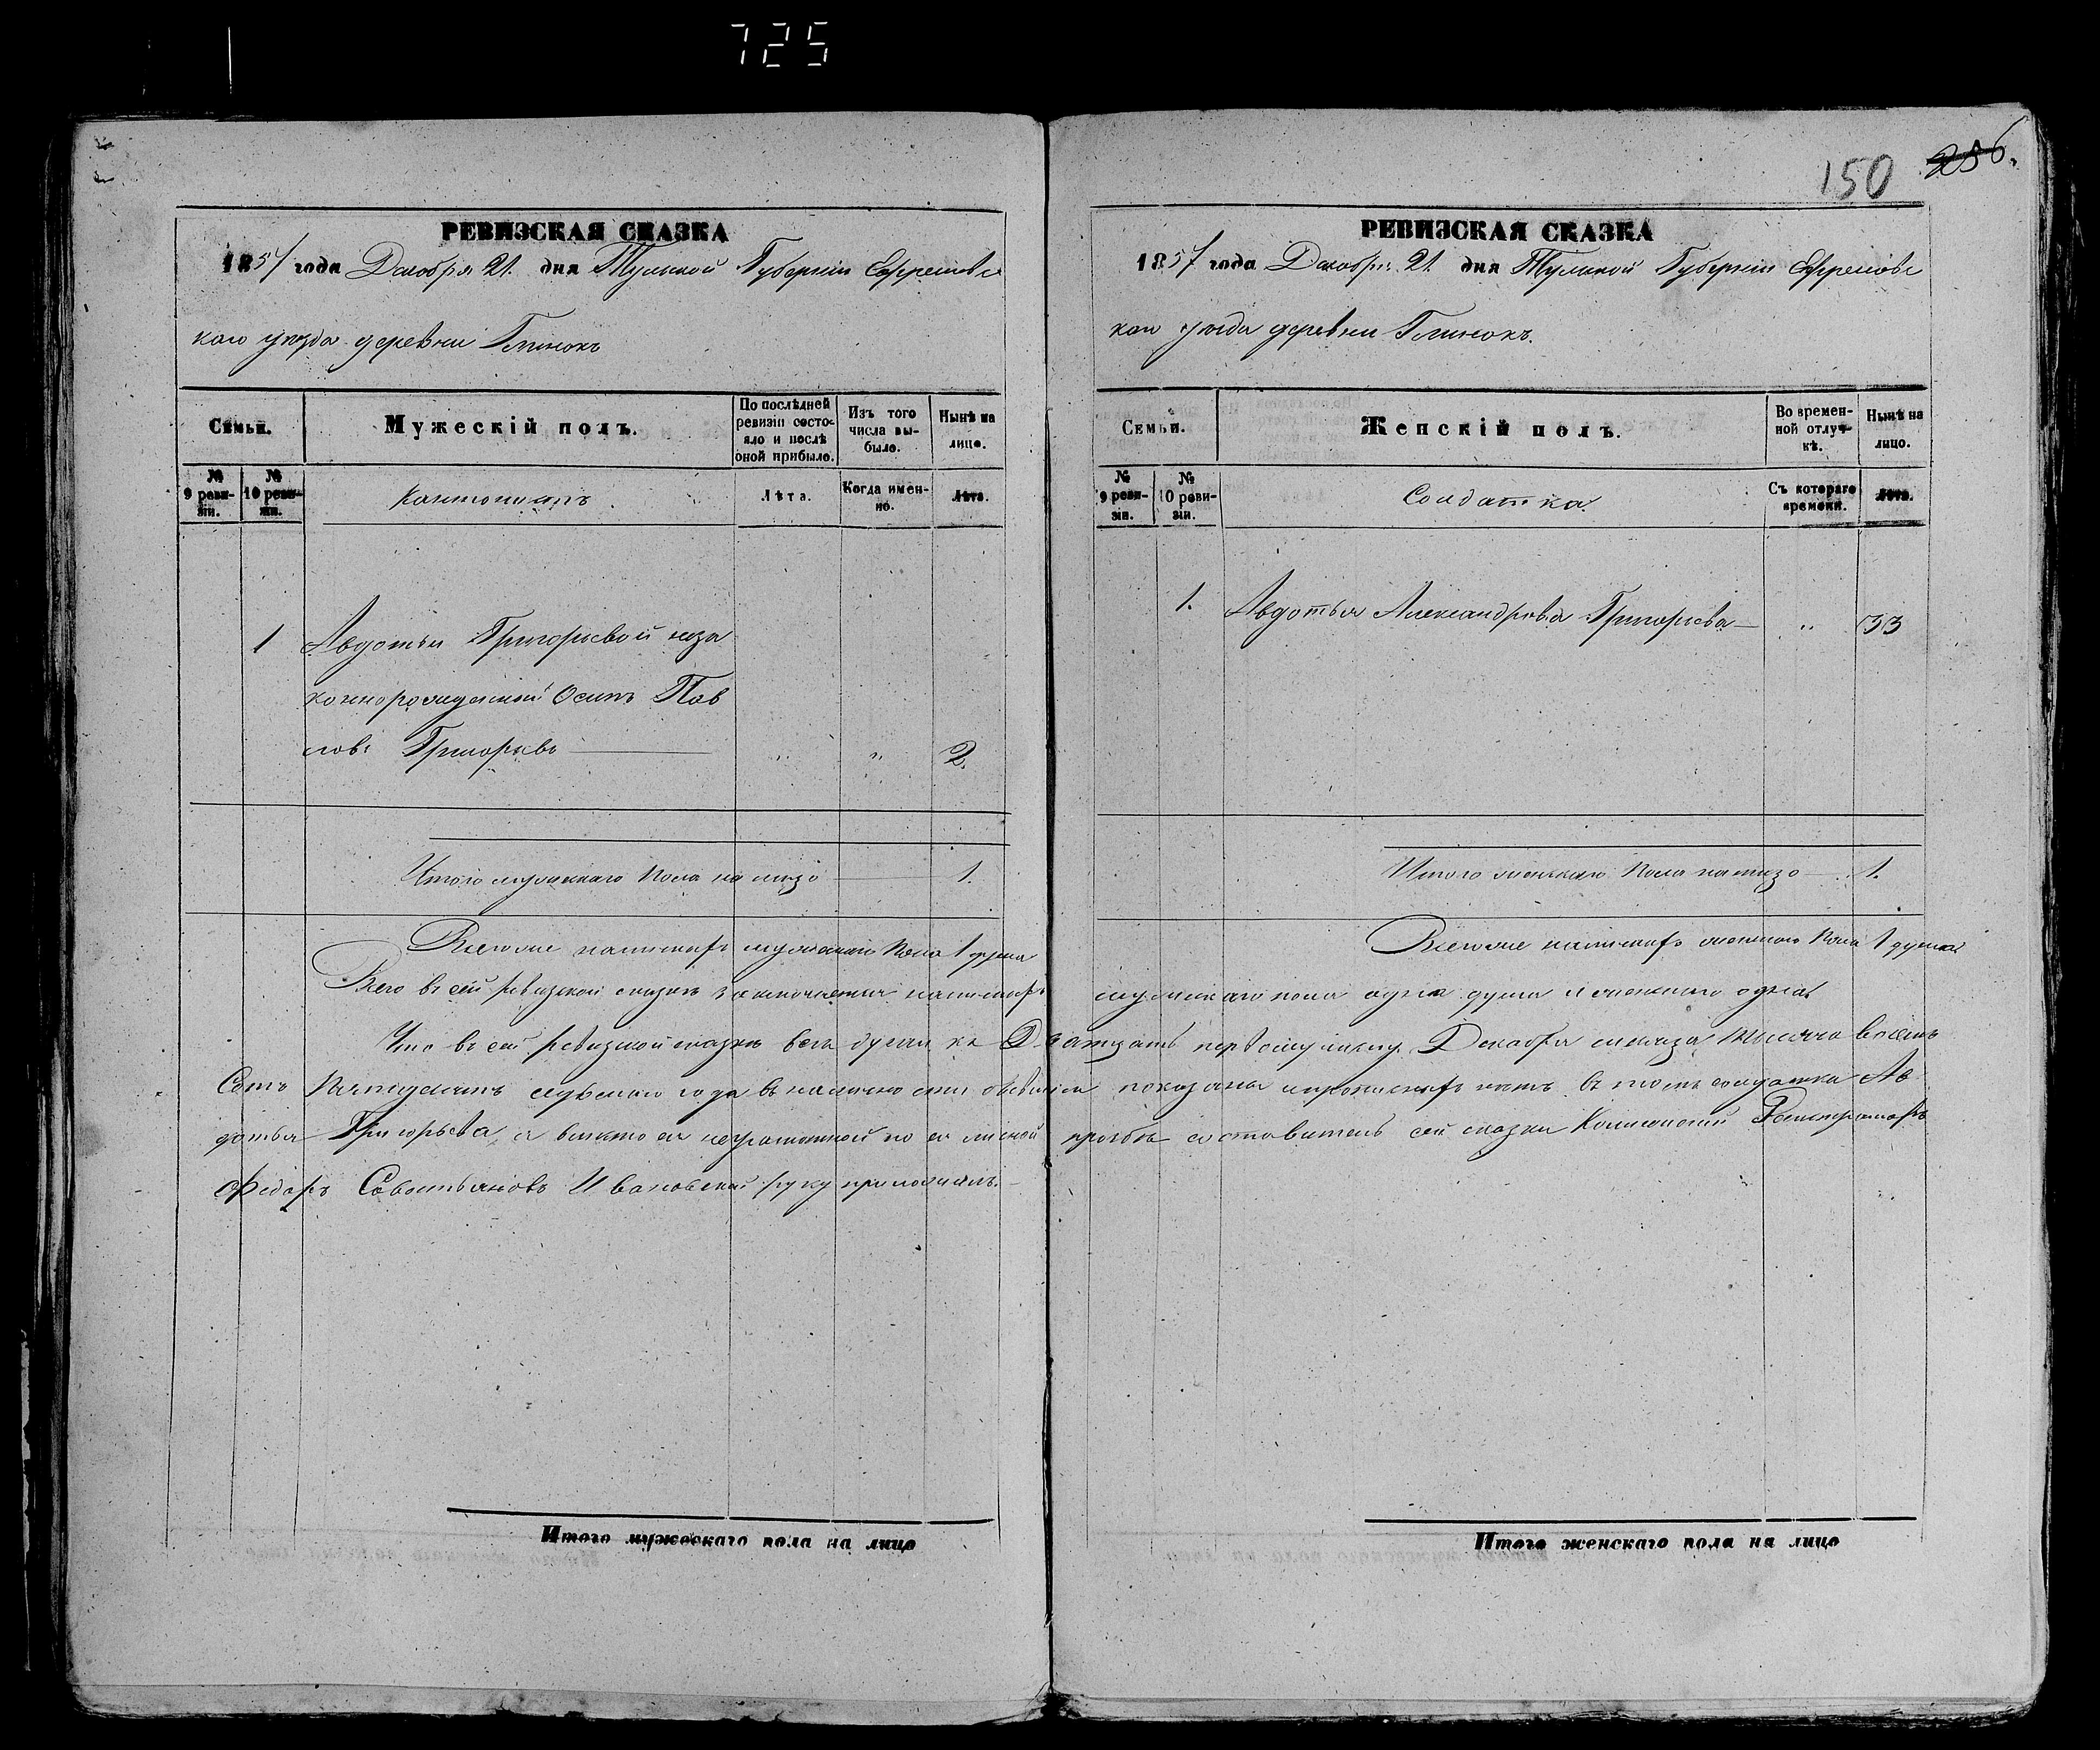 725
РЕВИЗСКАЯ СКАЗКА
1857 года Декабря 21 дня Тульской Губернии Ефремовс
каго уѣзда деревни Глинокъ
Семьи.
Мужескій полъ.
По послѣдней ревизіи состояло и послѣ оной прибыло.
Изъ того числа выбыло.
Нынѣ на лицо.
№ 9 ревизіи.
№ 10 ревизіи.
Кантонистъ
Лѣта.
Когда именно.
Лѣта.
1 Авдотьи Григорьевой неза
коннорожденной Осипъ Пав
ловъ Григорьевъ „ „ 2.
Итого мужескаго пола на лицо 1.
Всего же на лицо мужескаго пола 1 душа
150 286.
РЕВИЗСКАЯ СКАЗКА
1857 года Декабря 21 дня Тульской Губернии Ефремовс
каго уѣзда деревни Глинокъ.
Семьи.
Женскій полъ.
Во временной отлучкѣ.
Нынѣ на лицо.
№ 9 ревизіи.
№ 10 ревизіи.
Солдатка.
Съ котораго времени.
Лѣта.
1. Авдотья Александрова Григорьева „ 33
Итого женскаго пола на лицо 1.
женскаго пола 1 душа
Всего въ сей ревизской сказкѣ заключается мужескаго пола одна душа и женскаго одна
Что въ сей ревизской сказкѣ всѣ души къ Двадцать первому числу Декабря мѣсяца тысяча восемь
Сотъ Пятьдесятъ седьмаго года въ наличности показаны и нѣтъ въ томъ солдатка Ав
дотья Григорьева а вмѣсто ея неграмотной по ея личной прозьбѣ составитель сей сказки Колежский Регистраторъ
Федоръ Савостьяновъ Ивановской руку приложилъ.
Итого мужескаго пола на лицо
Итого женскаго пола на лицо